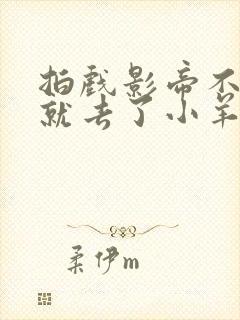 拍戏影帝不
就去了小羊
柔伊m